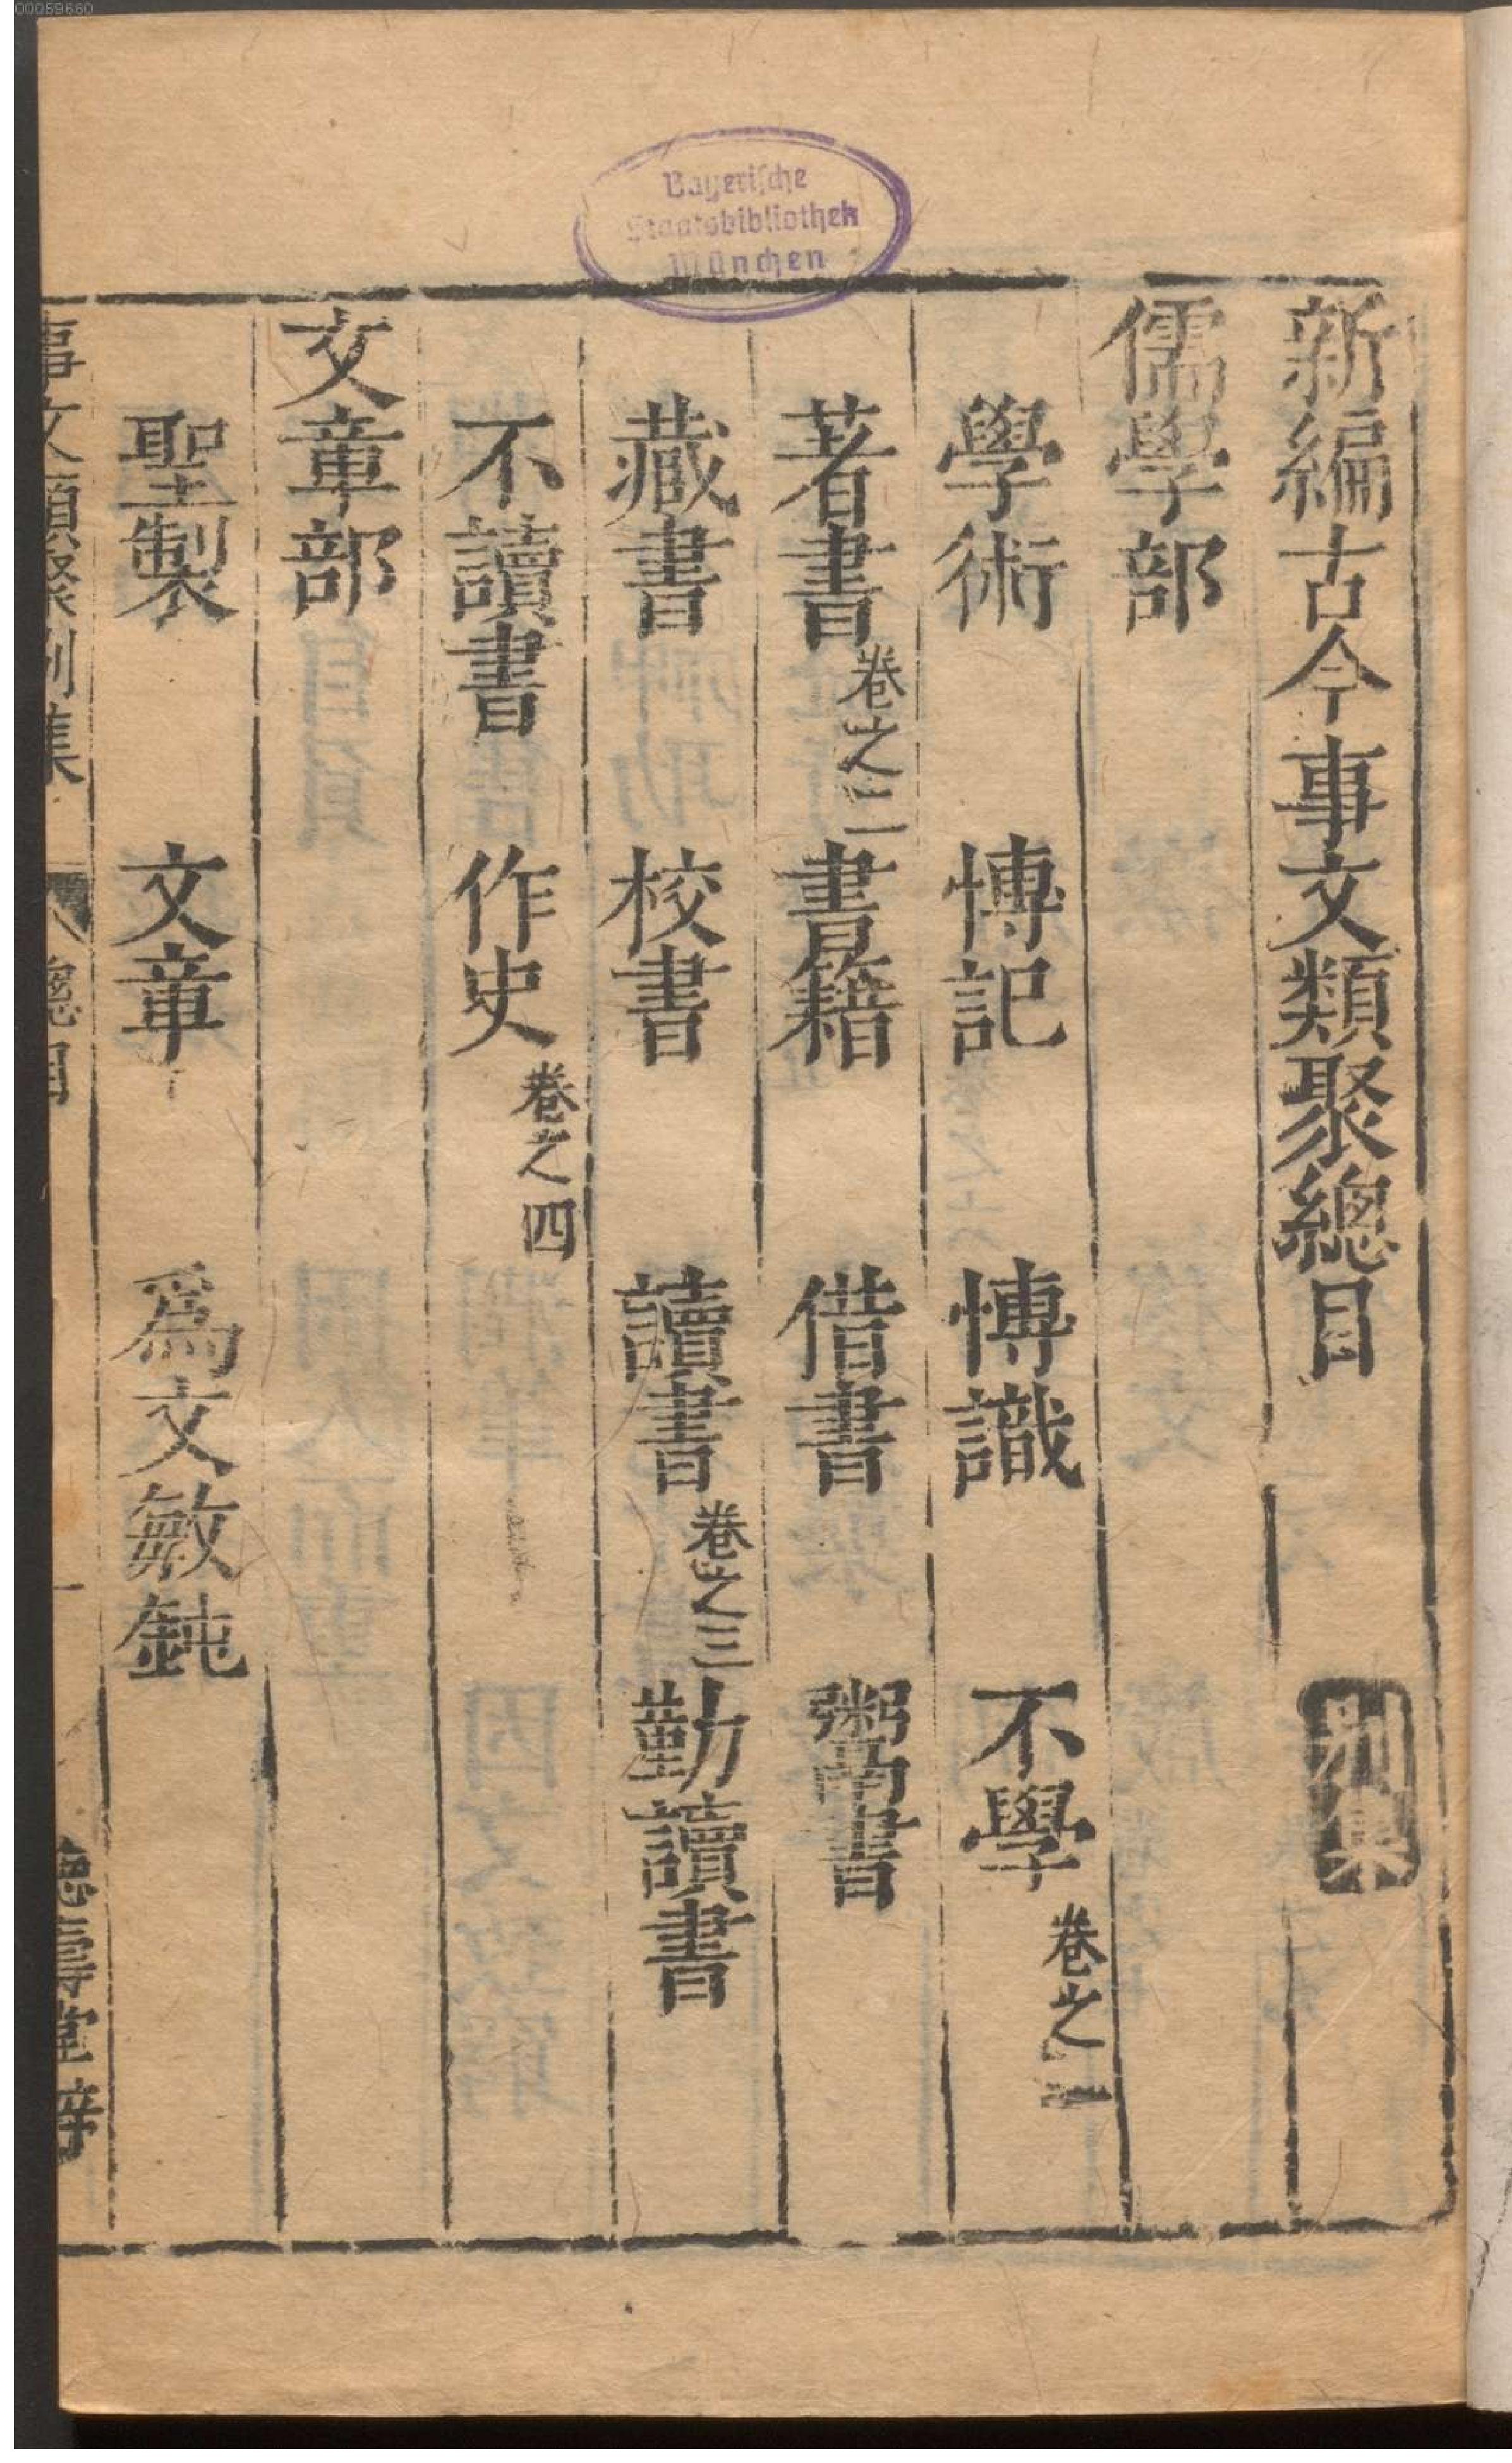 00059680
Bayerische
Staatsbibliothek
München
新編古今事文類聚總目 別集
儒學部
學術 愽記 愽識 不學 卷之一
著書 卷之二 書籍 借書 鬻書
藏書 校書 讀書 卷之三 勤讀書
不讀書 作史 卷之四
文章部
聖製 文章 爲文敏鈍
事文類聚別集 總目 一 德壽堂梓